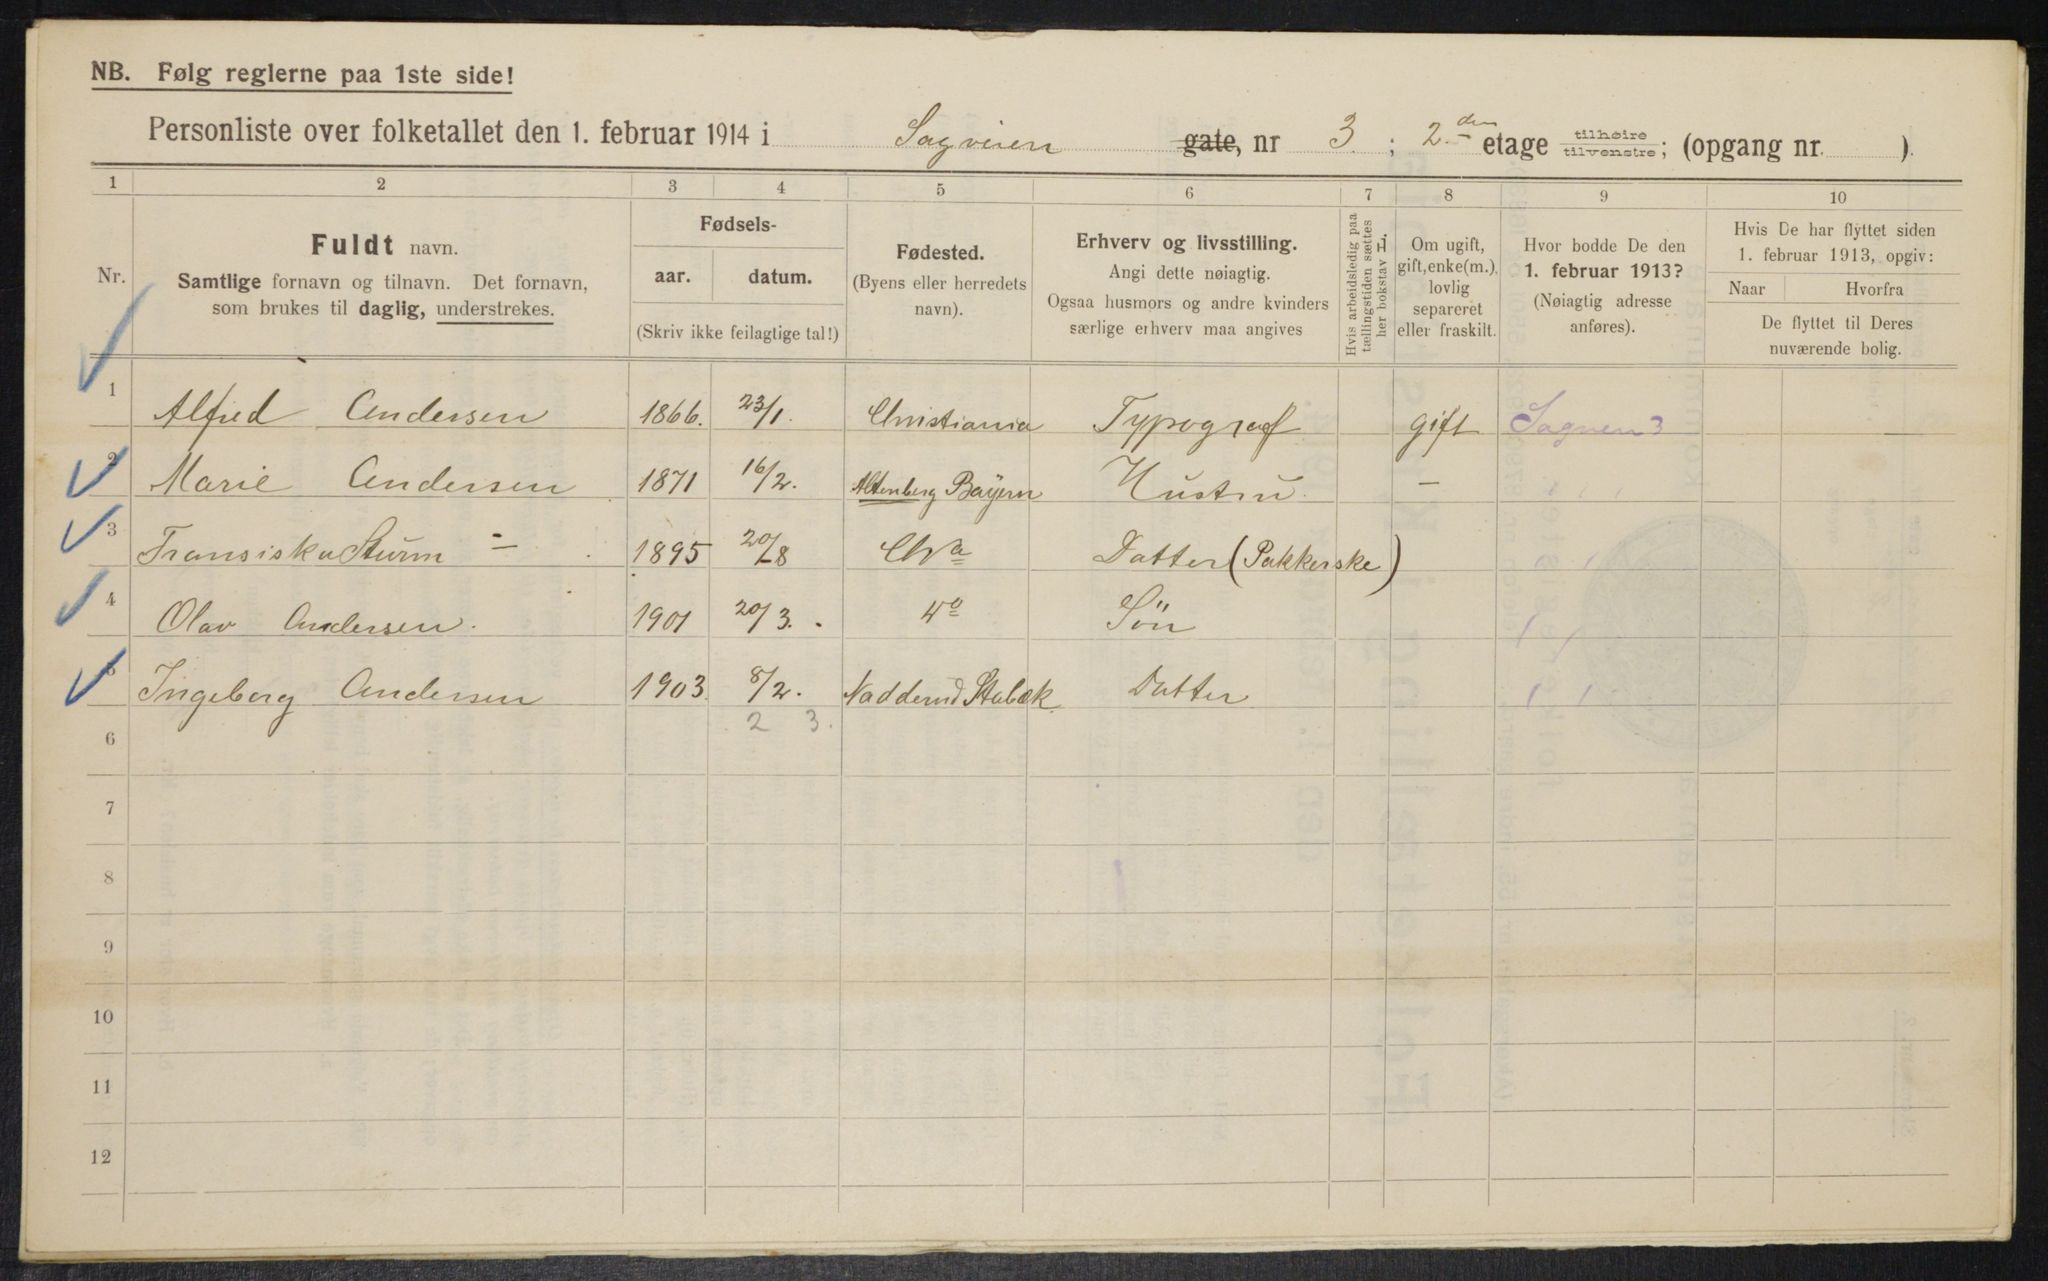 NB. Følg reglerne paa 1ste side!
Personliste over folketallet den 1. februar 1914 i Sagveien gate, nr 3 ; 2 den etage tilhøire tilvenstre; (opgang nr. ).
1 2 3 4 5 6 7 8 9 10
Nr.
Fuldt navn.
Samtlige fornavn og tilnavn. Det fornavn,
som brukes til daglig, understrekes.
Fødsels-
aar. datum.
(Skriv ikke feilagtige tal!)
Fødested.
(Byens eller herredets
navn).
Erhverv og livsstilling.
Angi dette nøiagtig.
Ogsaa husmors og andre kvinders
særlige erhverv maa angives
Hvis arbeidsledig paa
tællingstiden sættes
her bokstav L.
Om ugift,
gift, enke(m.),
lovlig
separeret
eller fraskilt.
Hvor bodde De den
1. februar 1913?
(Nøiagtig adresse
anføres).
Hvis De har flyttet siden
1. februar 1913, opgiv:
Naar Hvorfra
De flyttet til Deres
nuværende bolig.
1 Alfred Andersen 1866. 23/1. Christiania Typograf gift Sagveien 3
2 Marie Andersen 1871 16/2. Altenberg Bayern Hustru. —
3 Fransiska Sturm — 1895 20/8 Chra Datter (Pakkerske)
4 Olav Andersen. 1901 20/3. do Søn
5 Ingeborg Andersen 1903. 8/2. Nadderud Stabæk. Datter
2 3.
6
7
8
9
10
11
12